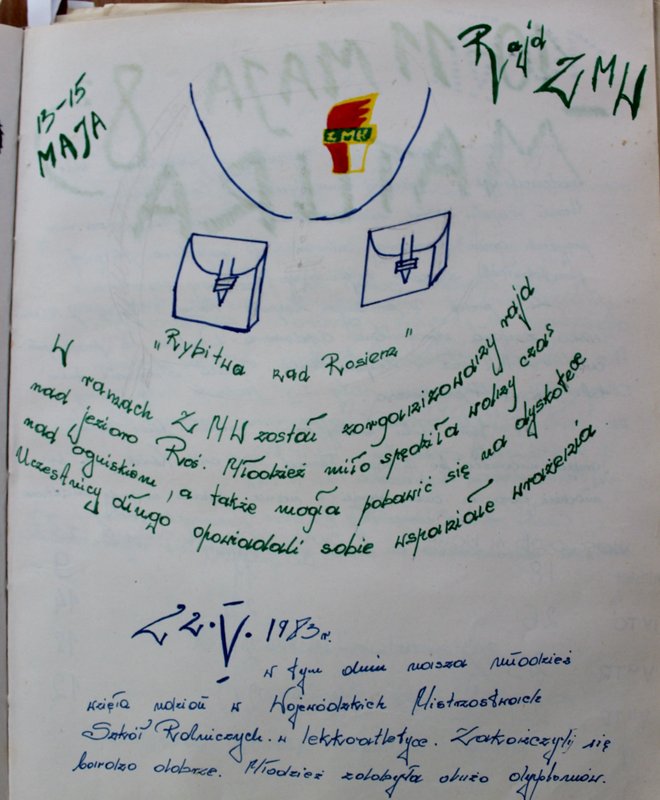 13-15
MAJA
Rajd
ZMW
ZMW
„Rybitwa nad Rosiem"
W ramach ZMW został zorganizowany rajd
nad jezioro Roś. Młodzież miło spędziła wolny czas
nad ogniskiem, a także mogła pobawić się na dyskotece
Uczestnicy długo opowiadali sobie wspaniałe wrażenia
22.V.1983r.
w tym dniu nasza młodzież
wzięła udział w Wojewódzkich Mistrzostwach
Szkół Rolniczych w lekkoatletyce. Zakończyły się
bardzo dobrze. Młodzież zdobyła dużo dyplomów.